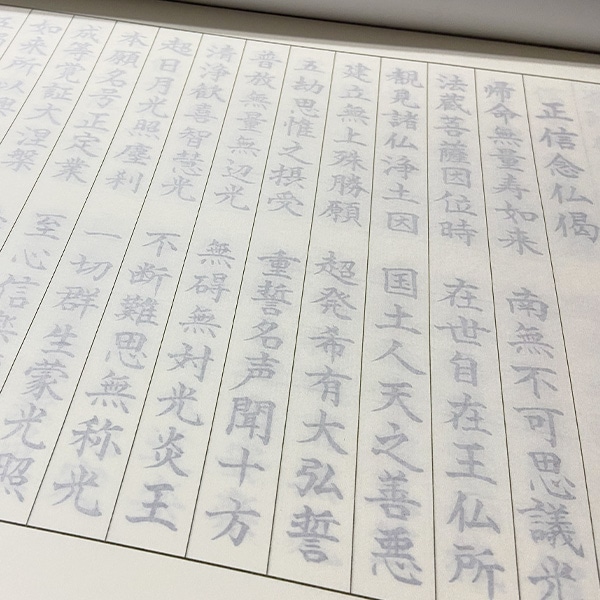 正信念仏偈
帰命無量寿如来 南無不可思議光
法蔵菩薩因位時 在世自在王仏所
覩見諸仏浄土因 国土人天之善悪
建立無上殊勝願 超発希有大弘誓
五劫思惟之摂受 重誓名声聞十方
普放無量無辺光 無碍無対光炎王
清浄歓喜智慧光 不断難思無称光
超日月光照塵刹 一切群生蒙光照
本願名号正定業 至心信楽
成等覚証大涅槃
如来所以興